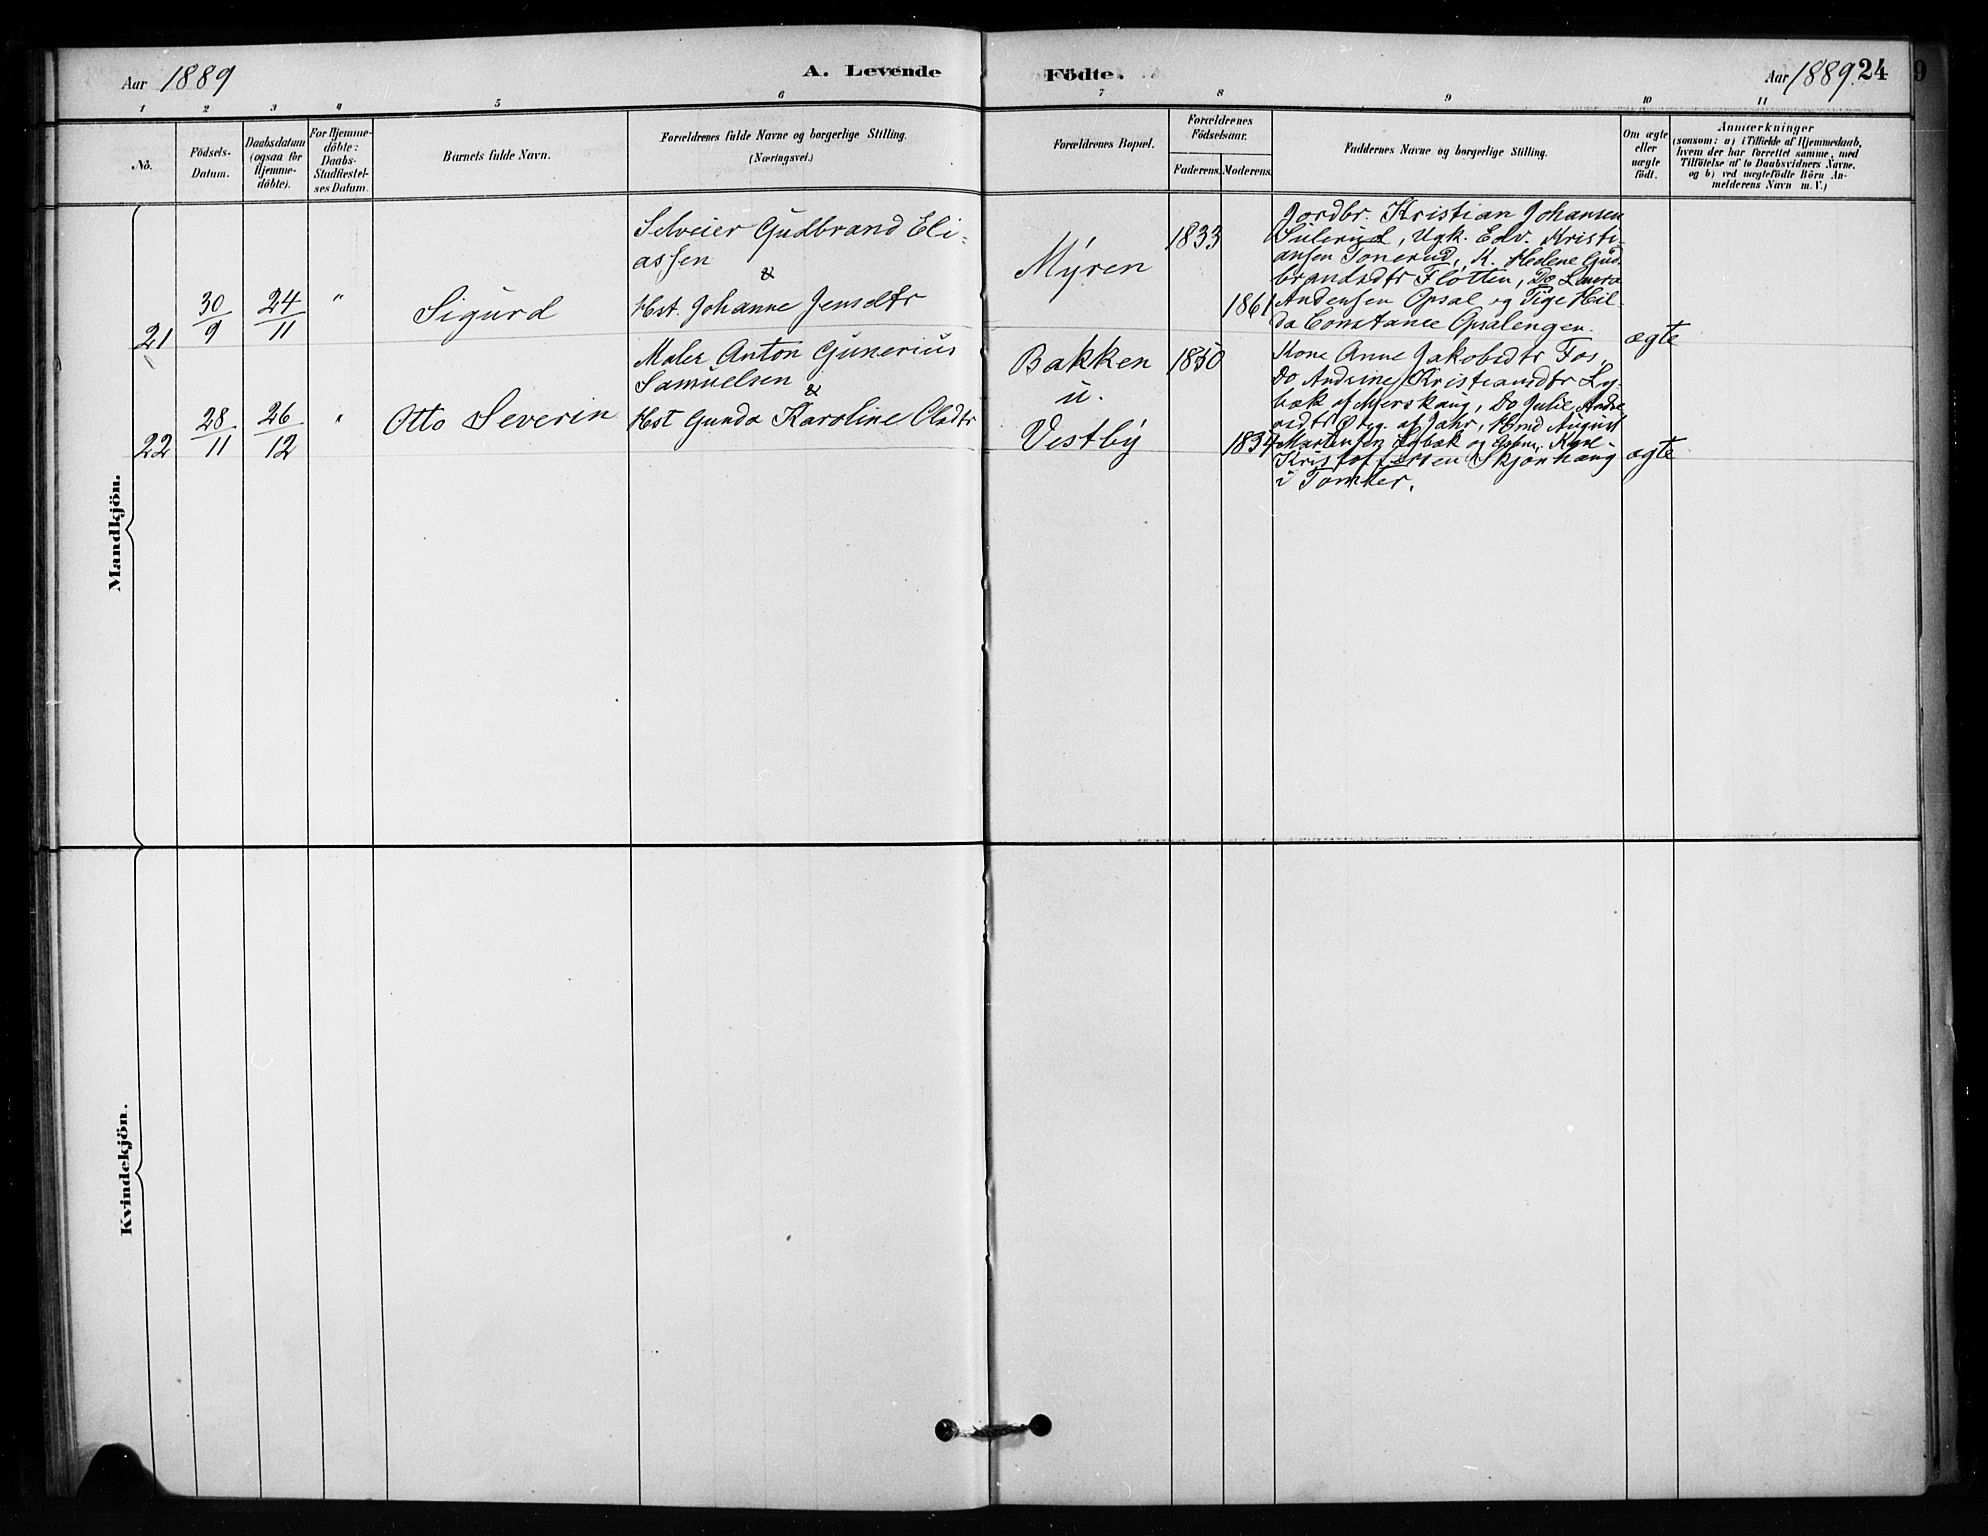 Aar 1889
A. Levende
Födte.
Aar 1889. 24
9
1 2 3 4 5 6 7 8 9 10 11
No.
Födsels-
Datum.
Daabsdatum
(ogsaa for
Hjemme-
döbte).
For Hjemme-
döbte:
Daabs-
Stadfæstel-
ses Datum.
Barnets fulde Navn.
Forældrenes fulde Navne og borgerlige Stilling.
(Næringsvei.)
Forældrenes Bopæl.
Forældrenes
Födselsaar.
Faderens. Moderens.
Faddernes Navne og borgerlige Stilling.
Om ægte
eller
uægte
født.
Anmærkninger
(saasom: a) i Tilfælde af Hjemmedaab,
hvem der har forrettet samme, med
Tilföielse af to Daabsvidners Navne.
og b) ved uægtefödte Börn An-
melderens Navn m. V.)
Mandkjön.
21
30/9
24/11
"
Sigurd
Selveier Gudbrand Eli-
assen
&
Hst. Johanne Jensdtr
Myren
1833
1861
Jordbr. Kristian Johansen
Sulerud, Ugk. Edv. Kristi-
ansen Tonerud, K. Helene Gud-
brandsdtr Fløtten, Do Laura
Andensen Opsal og Pige Hil-
da Constance Opsalengen.
ægte
22
28/11
26/12
"
Otto Severin
Maler Anton Gunerius
Samuelsen
&
Hst Gunda Karoline Olsdtr
Bakken
u.
Vestby
1850
1834
Kone Anne Jakobsdtr Fos,
Do Andrine Kristiansdtr Ly-
bæk af Mjerskaug, Do Julie Andre-
asdtr af Jahr, August
Martensen Lybæk og Karl
Kristoffersen Skjønhaug
i Tomter.
ægte
Kvindekjön.